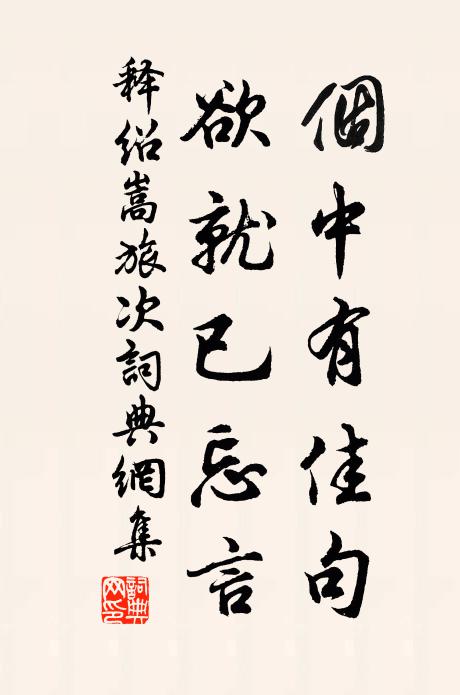 個中有佳句
欲就已忘言
释绍嵩旅次詞典網集
詞典网印